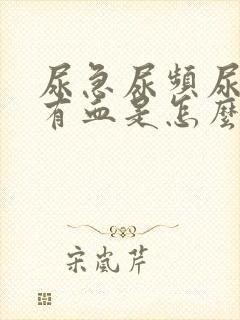 尿急尿頻尿
有血是怎麼
宋嵐芹